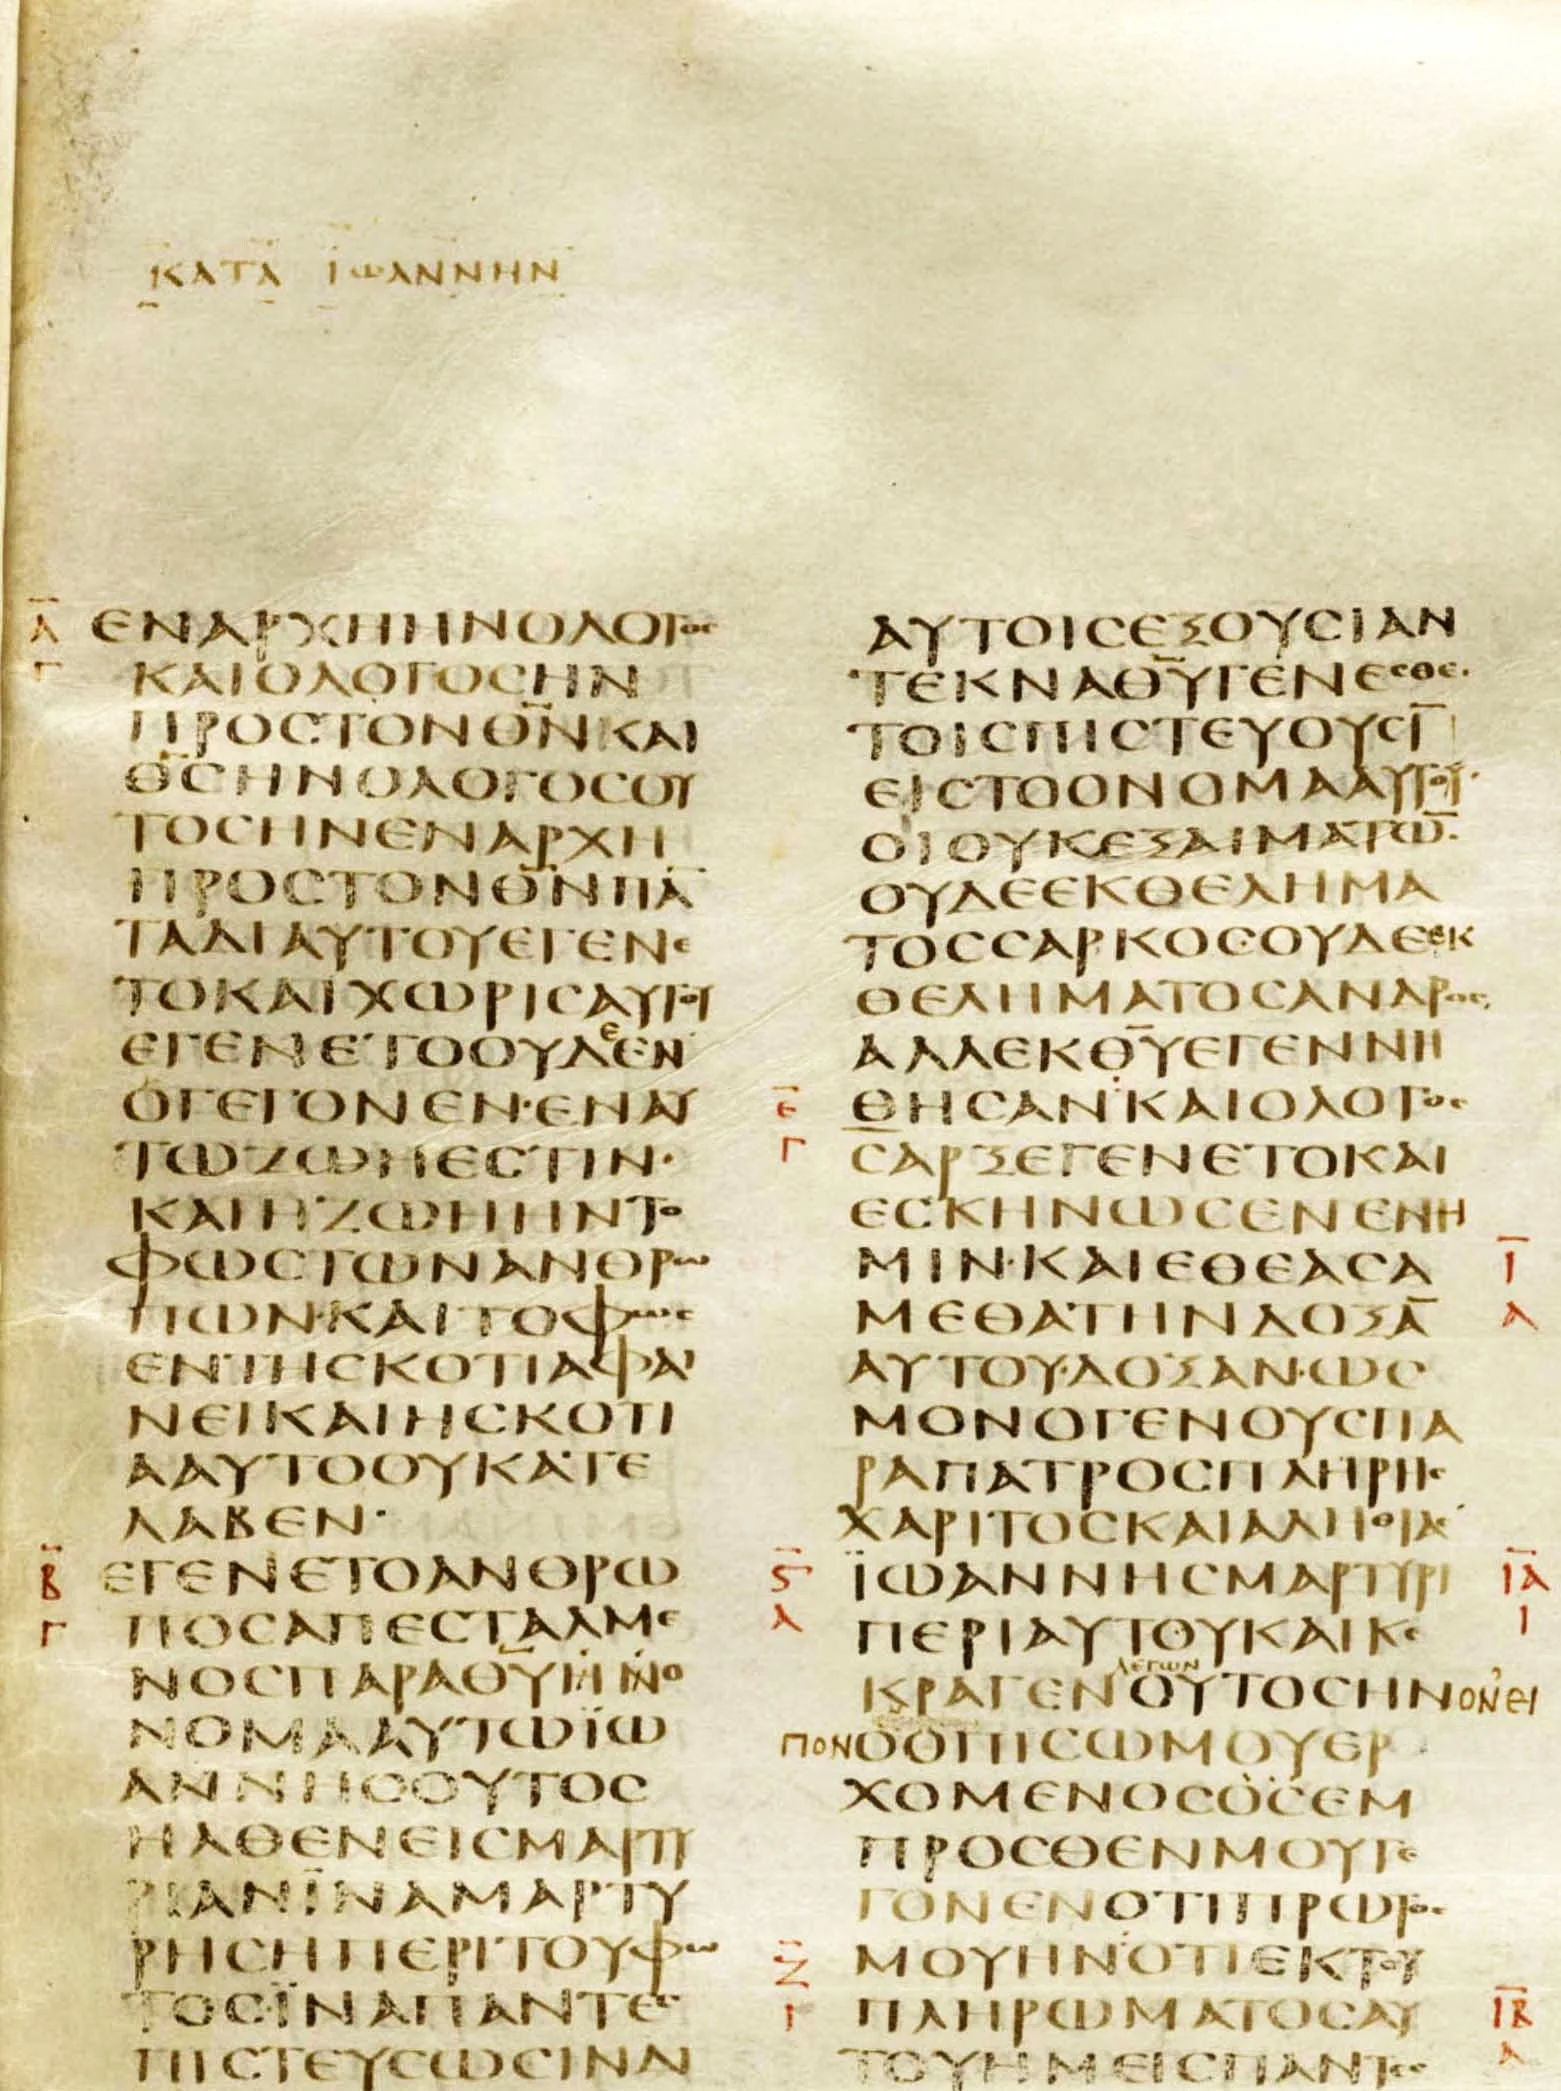 ΚΑΤΑ ΙΩΑΝΝΗΝ
Α̅ ΕΝΑΡΧΗΗΝΟΛΟΓΟϹ
Γ ΚΑΙΟΛΟΓΟϹΗΝ
ΠΡΟϹΤΟΝΘ̅Ν̅ΚΑΙ
Θ̅Ϲ̅ΗΝΟΛΟΓΟϹΟΥ
ΤΟϹΗΝΕΝΑΡΧΗ
ΠΡΟϹΤΟΝΘ̅Ν̅ΠΑ̅
ΤΑΔΙΑΥΤΟΥΕΓΕΝΕ
ΤΟΚΑΙΧΩΡΙϹΑΥΤΟΥ
ΕΓΕΝΕΤΟΟΥΔΕΕΝ
ΟΓΕΓΟΝΕΝ·ΕΝΑΥ
ΤΩΖΩΗΕϹΤΙΝ·
ΚΑΙΗΖΩΗΗΝΤΟ
ΦΩϹΤΩΝΑΝΘΡΩ
ΠΩΝ·ΚΑΙΤΟΦΩϹ
ΕΝΤΗϹΚΟΤΙΑΦΑΙ
ΝΕΙΚΑΙΗϹΚΟΤΙ
ΑΑΥΤΟΟΥΚΑΤΕ
ΛΑΒΕΝ·
Β̅ ΕΓΕΝΕΤΟΑΝΘΡΩ
Γ ΠΟϹΑΠΕϹΤΑΛΜΕ
ΝΟϹΠΑΡΑΘ̅Υ̅ΗΝΟ
ΝΟΜΑΑΥΤΩΪΩ
ΑΝΝΗϹΟΥΤΟϹ
ΗΛΘΕΝΕΙϹΜΑΡΤΥ
ΡΙΑΝΪΝΑΜΑΡΤΥ
ΡΗϹΗΠΕΡΙΤΟΥΦΩ
ΤΟϹΪΝΑΠΑΝΤΕϹ
ΠΙϹΤΕΥϹΩϹΙΝΔΙ
ΑΥΤΟΙϹΕΞΟΥϹΙΑΝ
ΤΕΚΝΑΘ̅Υ̅ΓΕΝΕϹΘΕ·
ΤΟΙϹΠΙϹΤΕΥΟΥϹΙ̅
ΕΙϹΤΟΟΝΟΜΑΑΥΤΟΥ·
ΟΙΟΥΚΕΞΑΙΜΑΤΩ̅·
ΟΥΔΕΕΚΘΕΛΗΜΑ
ΤΟϹϹΑΡΚΟϹΟΥΔΕΕΚ
ΘΕΛΗΜΑΤΟϹΑΝΔΡΟϹ
ΑΛΛΕΚΘ̅Υ̅ΕΓΕΝΝΗ
Ε̅ ΘΗϹΑΝΚΑΙΟΛΟΓΟϹ
Γ ϹΑΡΞΕΓΕΝΕΤΟΚΑΙ
ΕϹΚΗΝΩϹΕΝΕΝΗ
ΜΙΝ·ΚΑΙΕΘΕΑϹΑ Ι̅
ΜΕΘΑΤΗΝΔΟΞΑ̅ Α
ΑΥΤΟΥ·ΔΟΞΑΝ·ΩϹ
ΜΟΝΟΓΕΝΟΥϹΠΑ
ΡΑΠΑΤΡΟϹΠΛΗΡΗϹ
ΧΑΡΙΤΟϹΚΑΙΑΛΗΘΙΑϹ
Ϛ̅ ΪΩΑΝΝΗϹΜΑΡΤΥΡΙ Ι̅Α̅
Α ΠΕΡΙΑΥΤΟΥΚΑΙΚΕ Ι
ΛΕΓΩΝ
ΚΡΑΓΕΝΟΥΤΟϹΗΝΟΝΕΙ
ΠΟΝΟΟΠΙϹΩΜΟΥΕΡ
ΧΟΜΕΝΟϹΟϹΕΜ
ΠΡΟϹΘΕΝΜΟΥΓΕ
ΓΟΝΕΝΟΤΙΠΡΩΤΟϹ
Ζ̅ ΜΟΥΗΝΟΤΙΕΚΤΟΥ
Γ ΠΛΗΡΩΜΑΤΟϹΑΥ Ι̅Β̅
ΤΟΥΗΜΕΙϹΠΑΝΤΕϹ Α